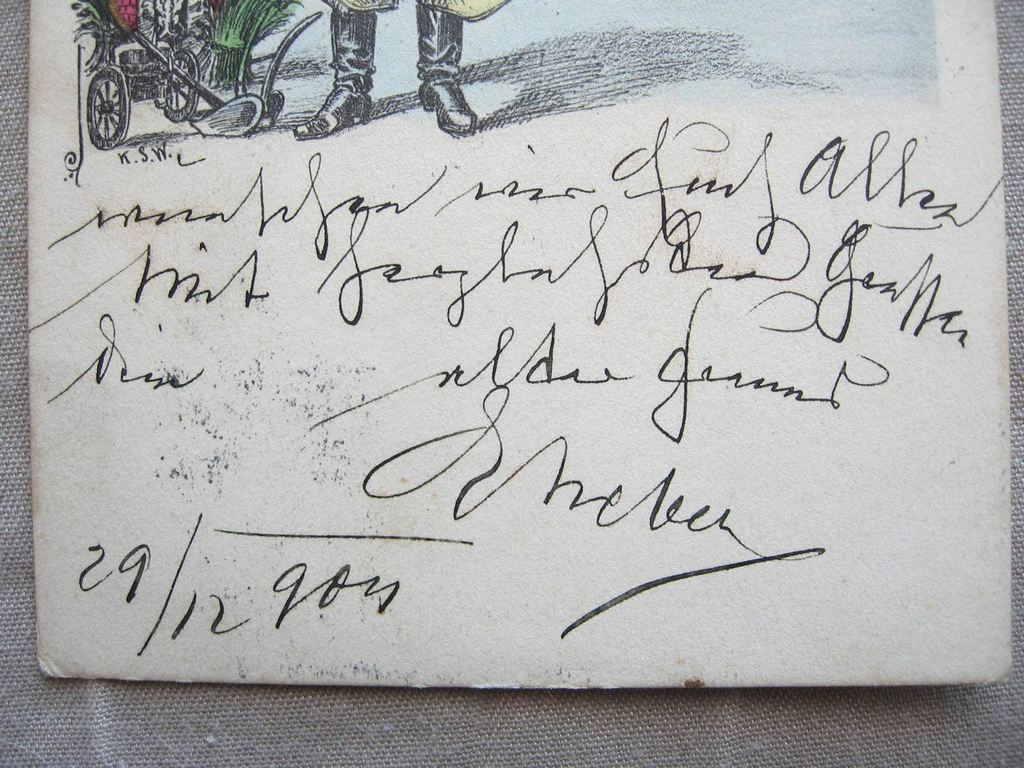 K.S.W.
wünschen wir Euch Allen
Mit herzlichsten Grüssen
Dein alter Freund
29/12 904